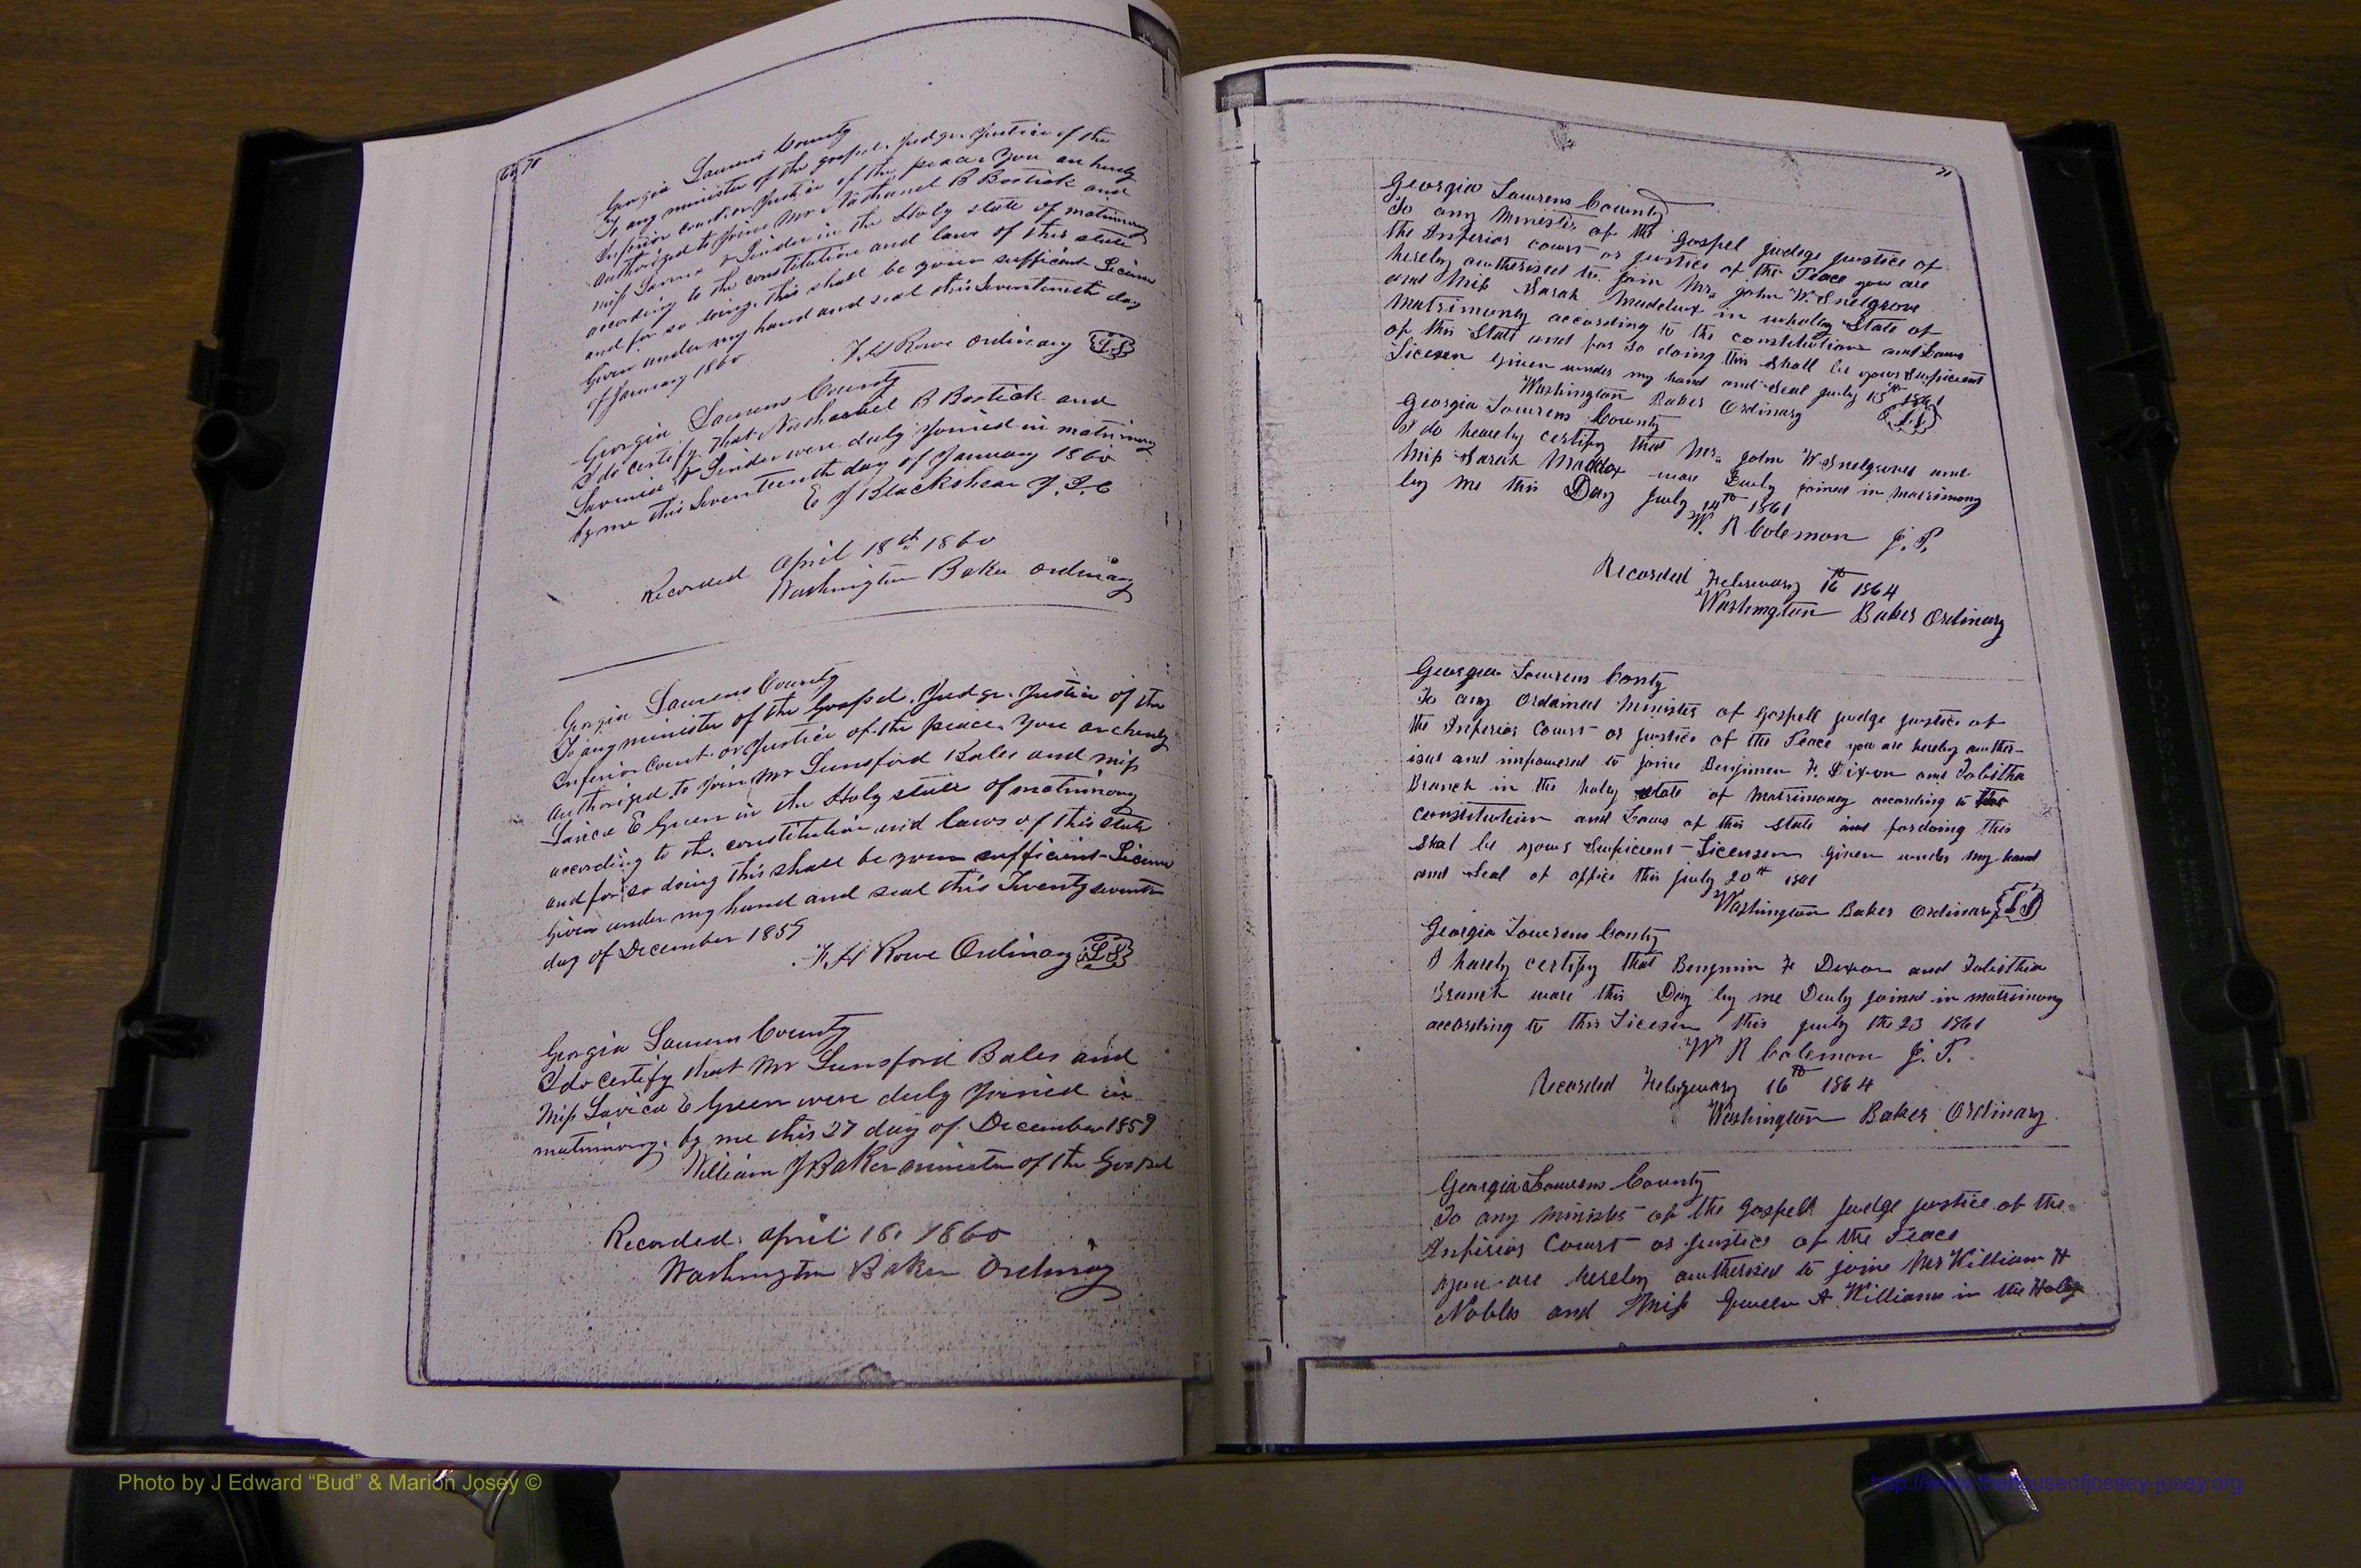 71
Georgia Laurens County
To any minister of the gospel. Judge. Justice of the
Inferior court or Justice of the peace. You are hereby
authorized to join Mr Nathaniel B Bostick and
miss Linder in the Holy state of matrimony
according to the constitution and laws of this state
and for so doing this shall be your sufficient License
Given under my hand and seal this Seventeenth day
of January 1860
F H Rowe Ordinary L.S
Georgia Laurens County
I do certify that Nathaniel B Bostick and
Linder were duly Joined in matrimony
by me this Seventeenth day of January 1860
E J Blackshear J. I. C
Recorded April 18th 1860
Washington Baker Ordinary
Georgia Laurens County
To any minister of the Gospel. Judge. Justice of the
Inferior Court. or Justice of the peace. You are hereby
Authorized. to join Mr Lunsford Bales and miss
E Green in the Holy state of matrimony
according to the constitution and laws of this state
and for so doing this shall be your sufficient License
Given under my hand and seal this Twenty seventh
day of December 1859
F H Rowe Ordinary L S
Georgia Laurens County
I do certify that Mr Lunsford Bales and
Miss E Green were duly Joined in
matrimony. by me this 27 day of December 1859
William J Baker minister of the Gospel
Recorded. April 18. 1860
Washington Baker Ordinary
71
Georgia Lowrens County
To any Minister of the Gospel judege justice of
the Inferior court or justice of the Peace you are
hereby autherised to join Mr. john W. Snelgrove
and Miss Sarah Maddux in wholey State of
Matrimoney according to the constitution and Laws
of this State and for so doing this Shall be yours Suficient
Licesen Given under my hand and Seal july 13th 1861
Washington Baker Ordinary L.S
Georgia Lowrens County
I do heareby certify that Mr. john W Snelgroves and
Miss Sarah Maddox ware Duly joined in matrimony
by me this Day july 14th 1861
W. R Colemon J. P.
Recorded Feberuary 16th 1864
Washington Baker Ordinary
Georgia Lowrens Conty
To any Ordained Minister of Gospell judge justice of
the Inferior Court or justice of the Peace you are hereby auther-
ised and impowered to joine Benjimen F. Dixon and Tabitha
Branch in the holey state of Matrimoney according to the
constitution and Laws of this State and fordoing this
Shal be yours Suficient Licensen Given under my hand
and Seal of office this july 20th 1861
Washington Baker Ordinary L S
Georgia Lowrens Conty
I hareby certify that Bengmin F Dixon and Tabitha
Branch ware this Day by me Duly joined in matrimony
according to this Licesen this july the 23 1861
W R Colemon J. P.
Recorded Feberuary 16th 1864
Washington Baker Ordinary
Georgia Lowrens County
To any minister of the Gospell judge justice of the
Inferior Court or justice of the Peace
you are hereby autherised to joine Mr William H
Nobles and Miss A Williams in the Holy
Photo by J Edward “Bud” & Marion Josey ©
http://www.thehouseofjossey-josey.org